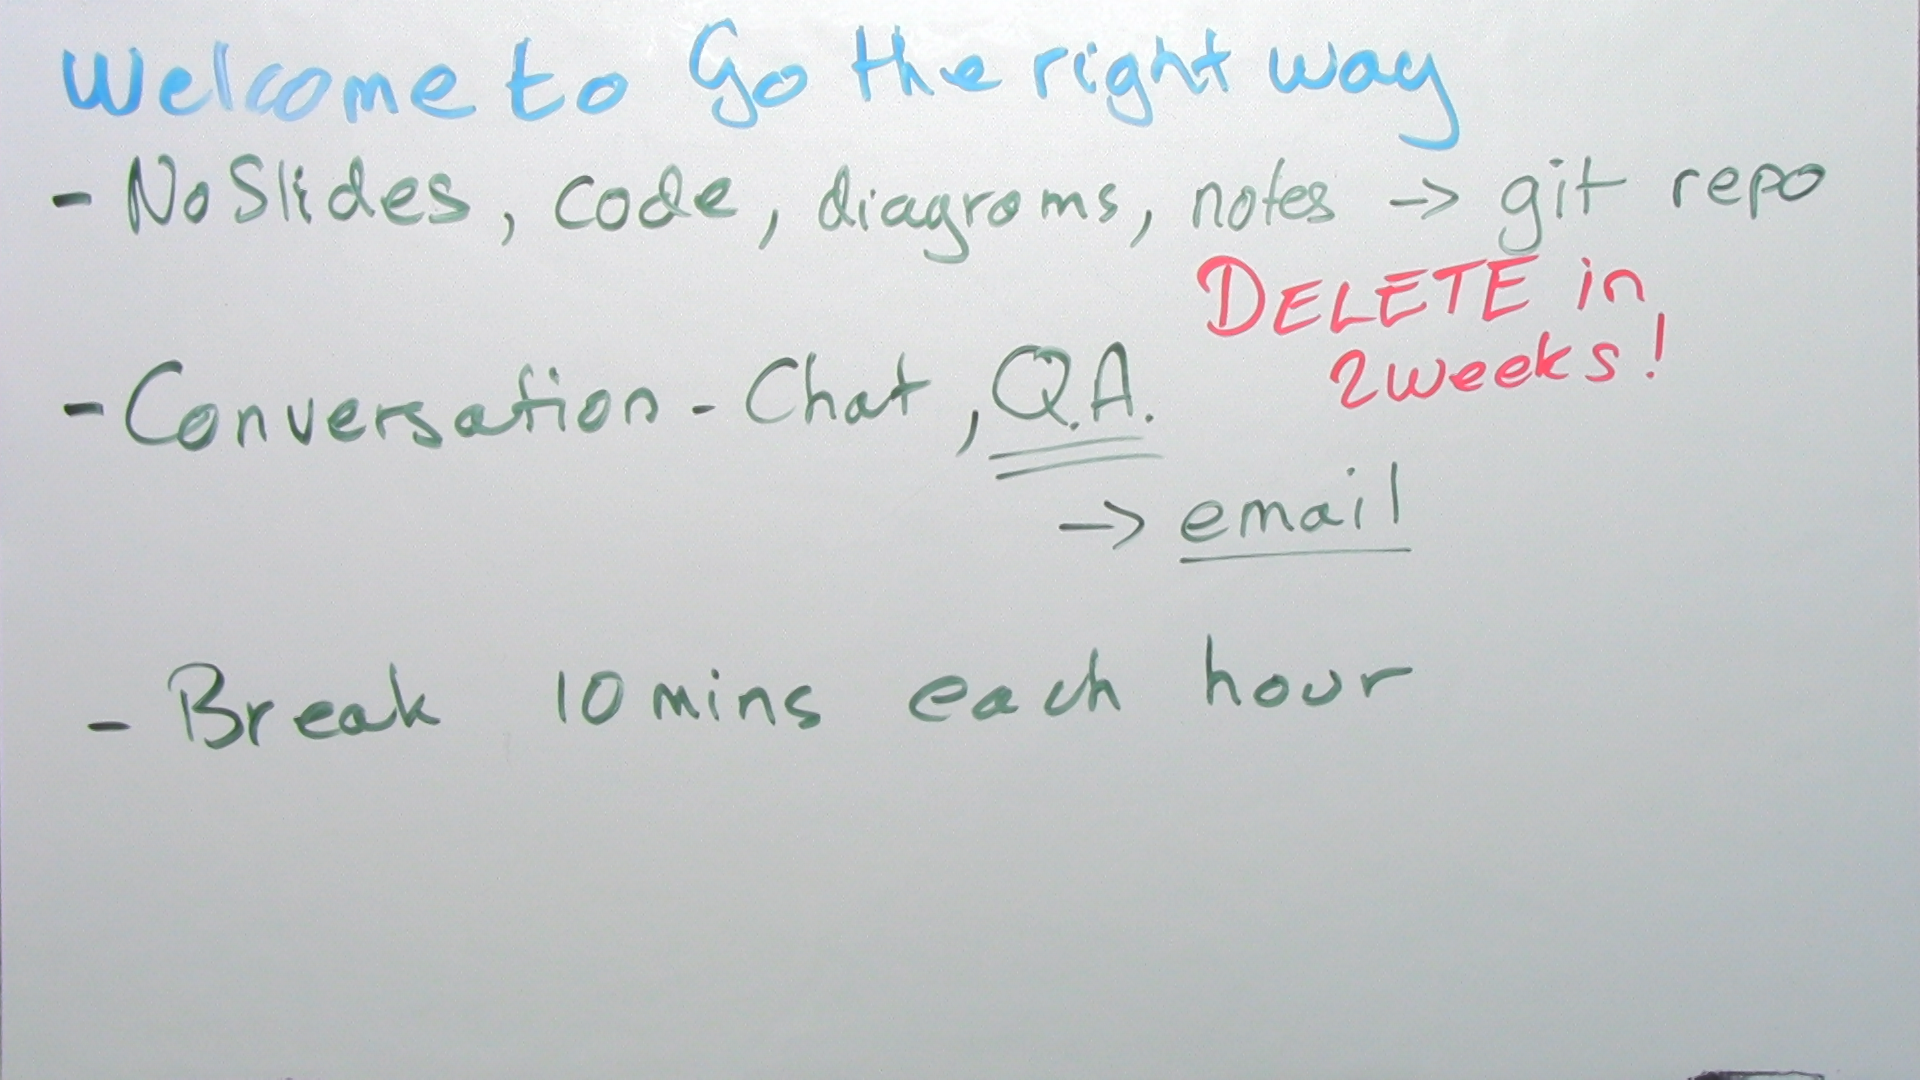 Welcome to Go the right way
- No Slides, code, diagrams, notes -> git repo
DELETE in
2 weeks!
- Conversation - Chat, Q.A.
-> email
- Break 10 mins each hour